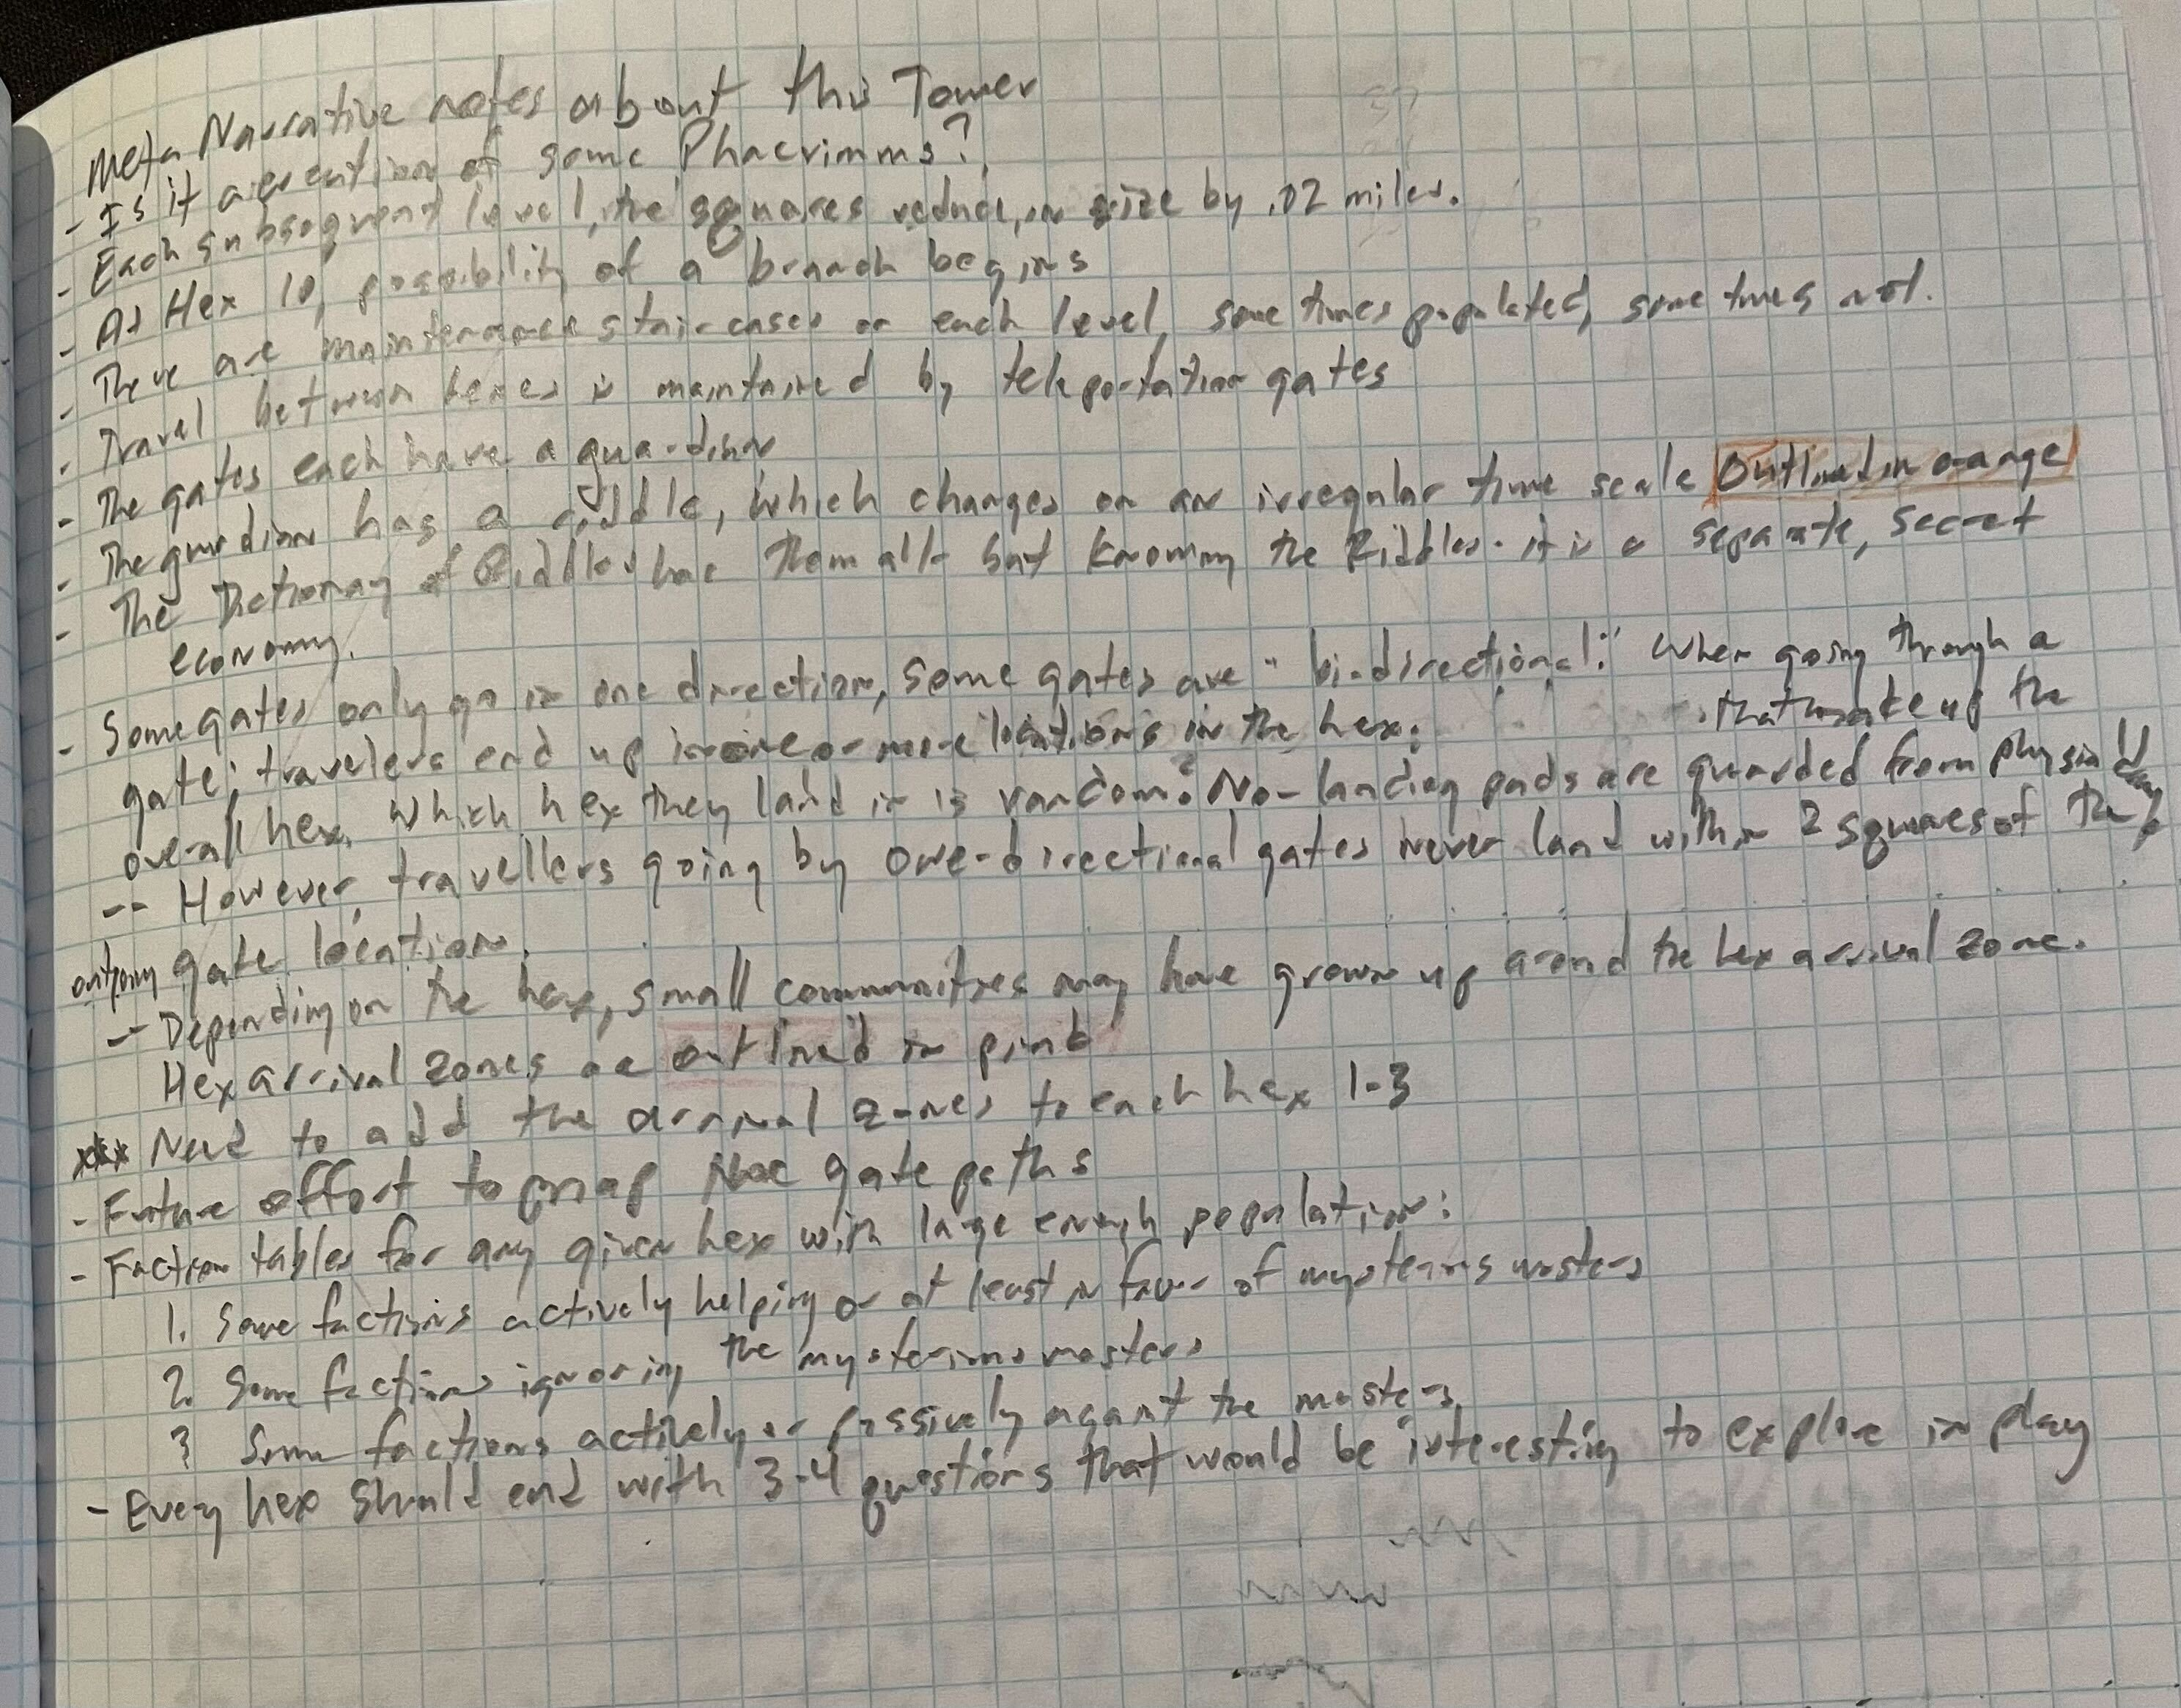 Meta Narrative notes about this Tower
- Is it a creation of some Phaerimms?
- Each subsequent level, the squares reduce in size by .02 miles.
- At Hex 10, possibility of a branch begins
- There are maintenance staircases on each level, sometimes populated, sometimes not.
- Travel between hexes is maintained by teleportation gates
- The gates each have a guardian
- The guardian has a riddle, which changes on an irregular time scale Outlined in orange
- The Dictionary of Riddles has them all - but knowing the Riddles - it is a separate, secret
economy.
- Some gates only go in one direction, some gates are "bi-directional." When going through a
gate; travelers end up in one or more locations in the hex. that make up the
overall hex. Which hex they land in is random? No - landing pads are guarded from physical
-- However, travellers going by one-directional gates never land within 2 squares of the
outgoing gate location.
-- Depending on the hex, small communities may have grown up around the hex arrival zone.
Hex arrival zones are outlined in pink
*** Need to add the arrival zones to each hex 1-3
- Future effort to map gate paths
- Faction tables for any given hex with large enough population:
1. Some factions actively helping or at least in favor of mysterious masters
2. Some factions ignoring the mysterious masters
3 Some factions actively or passively against the masters
- Every hex should end with 3-4 questions that would be interesting to explore in play